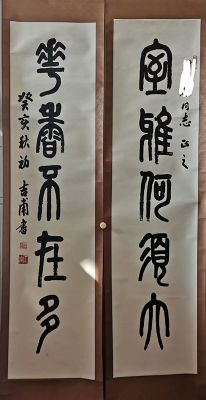 室雅何須大
同志正之
花香不在多
癸亥秋初 吉甫書